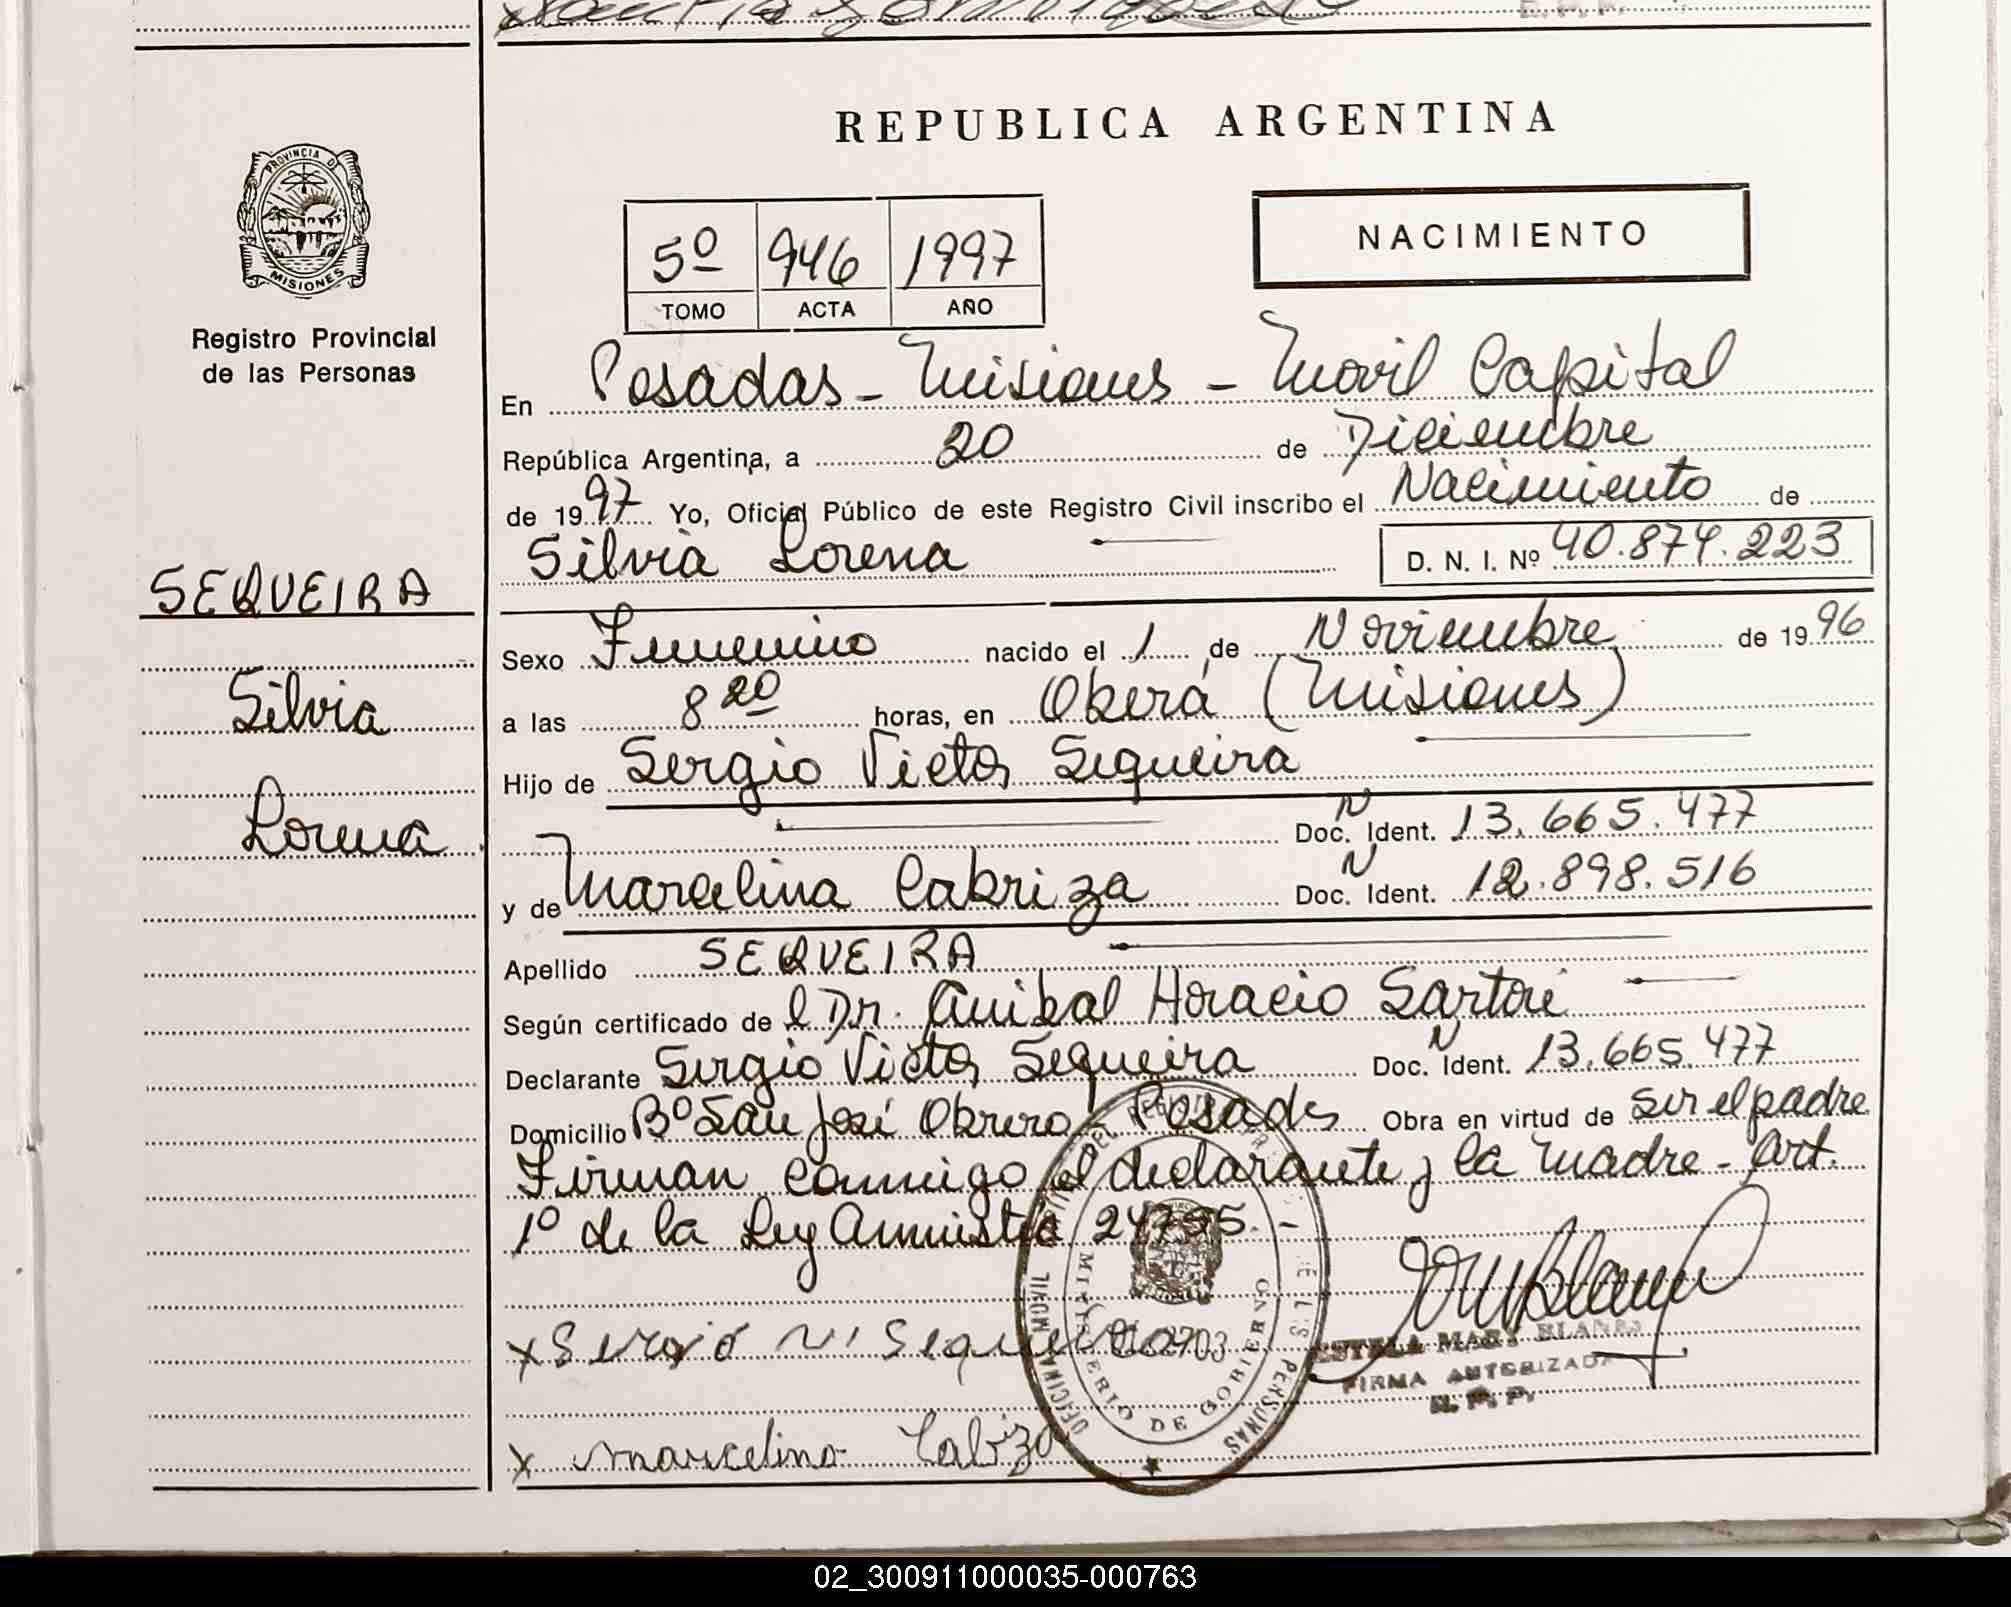 REPUBLICA ARGENTINA
PROVINCIA DE
MISIONES
Registro Provincial
de las Personas
5º 946 1997
TOMO ACTA AÑO
NACIMIENTO
En Posadas - Misiones - Movil Capital
República Argentina, a 20 de Diciembre
de 1997 Yo, Oficial Público de este Registro Civil inscribo el Nacimiento de
Silvia Lorena D. N. I. Nº 40.874.223
SEQUEIRA
Silvia
Lorena
Sexo Femenino nacido el 1 de Noviembre de 1996
a las 8 20 horas, en Oberá (Misiones)
Hijo de Sergio Victor Sequeira
Doc. N Ident. 13.665.477
y de Marcelina Cabriza Doc. N Ident. 12.898.516
Apellido SEQUEIRA
Según certificado de l Dr. Anibal Horacio Sartori
Declarante Sergio Victor Sequeira Doc. N Ident. 13.665.477
Domicilio Bº San José Obrero - Posadas Obra en virtud de ser el padre
Firman conmigo el declarante y la madre - Art.
1º de la Ley Amnistia 24755. -
x Sergio V. Sequeira
x marcelina Cabriza
OFICINA MOVIL
MINISTERIO DE GOBIERNO
ESTELA MARY BLANCO
FIRMA AUTORIZADA
R. P. P.
02_300911000035-000763